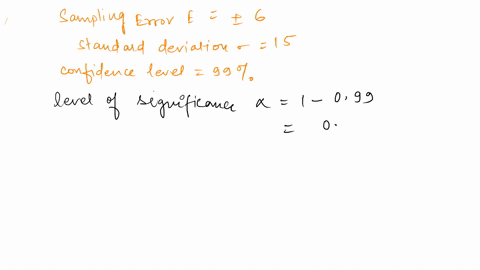 Sampling Error E = ± 6
standard deviation σ = 15
confidence level = 99%
level of significance α = 1 - 0.99
= 0.